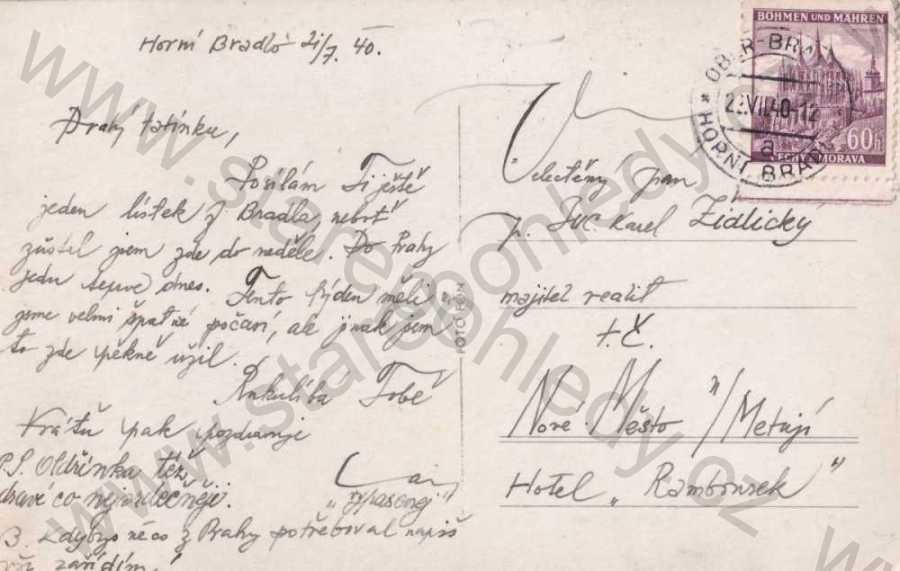 Horní Bradlo 21/7. 40.
Drahý tatínku,
Posílám Ti ještě
jeden lístek z Bradla, neboť
zůstal jsem zde do neděle. Do Prahy
jedu teprve dnes. Tento týden měli
jsme velmi špatné počasí, ale jinak jsem
to zde pěkně užil.
Rukulíba Tobě
a pak pozdravuje
P.S. Oldřinka též
zdraví co nejsrdečněji.
Kdybys něco z Prahy potřeboval napiš
zařídím!
FOTO FON
BÖHMEN UND MÄHREN
60h
ČECHY A MORAVA
OBER-BRADL
22.VII.40-12
a
* HORNÍ BRADLO
Velectěný pan
p. JUC. Karel Židlický
majitel realit
t.č.
Nové Město n/Metují
Hotel „Rambousek"
www.stare-pohledy.cz